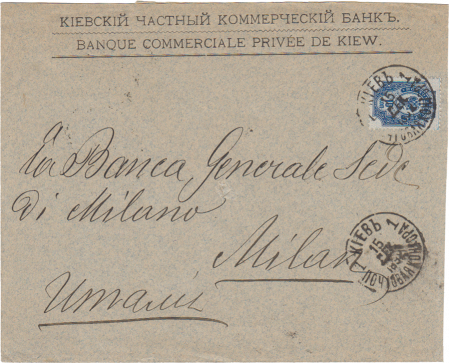 КІЕВСКІЙ ЧАСТНЫЙ КОММЕРЧЕСКІЙ БАНКЪ.
BANQUE COMMERCIALE PRIVÉE DE KIEW.
КІЕВЪ 1
a
la Banca Generale Sede
di Milano
Milan
Италія
КІЕВЪ 1
15